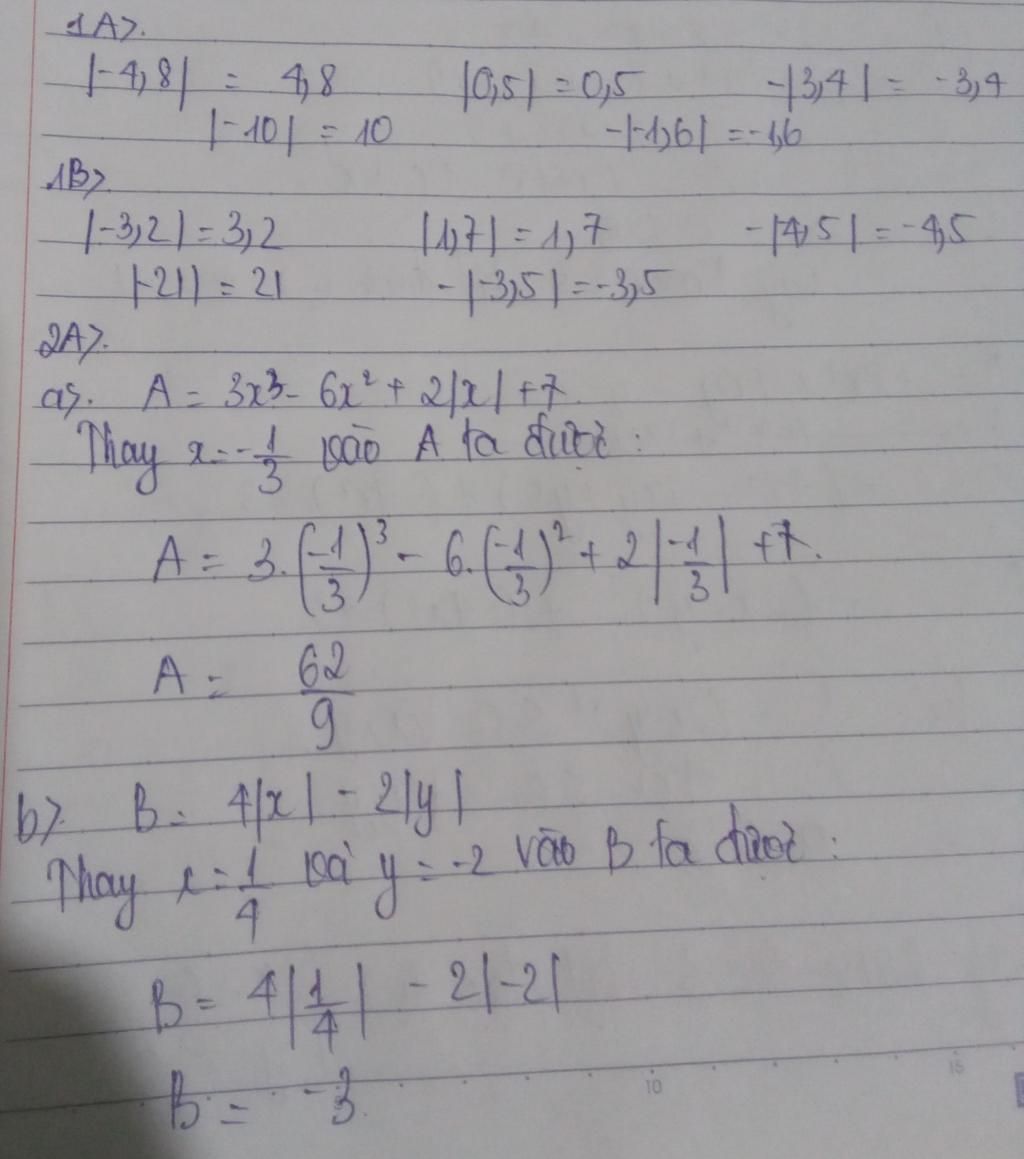 1A>.
|-4,8| = 4,8 |0,5| = 0,5 -|3,4| = -3,4
|-10| = 10 -|-1,6| = -1,6
1B>
|-3,2| = 3,2 |1,7| = 1,7 -|4,5| = -4,5
|-21| = 21 -|-3,5| = -3,5
2A>.
a>. A = 3x³ - 6x² + 2|x| + 7
Thay x = -1/3 vào A ta được :
A = 3.(-1/3)³ - 6.(-1/3)² + 2|-1/3| + 7.
A = 62/9
b>. B = 4|x| - 2|y|
Thay x = 1/4 và y = -2 vào B ta được :
B = 4|1/4| - 2|-2|
B = -3
10 15